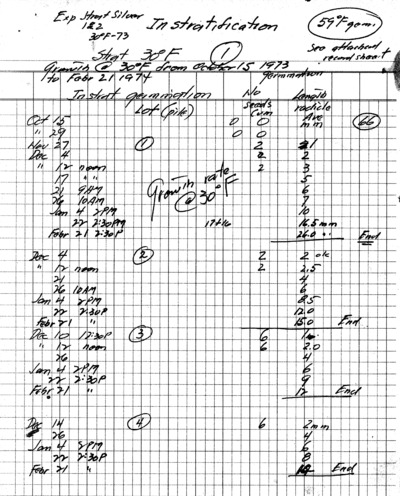 Exp Strat Silver
1 & 2
30°F-73
Instratification
59°F germ.
See attached
record sheet
Strat 30°F
1
Growth @ 30°F from October 15 1973
to Febr 21 1974
germination
Instrat germination
Lot (pile)
No
seeds
Cum
Length
radicle
Ave
mm
Oct 15 0 0
" 29 0 0
66
Nov 27 1 2 1
Dec 4 2 2
" 12 noon 2 3
17 " 5
21 9AM 6
26 10AM 7
Jan 4 2PM 10
22 2:30PM 17+16 16.5mm
Febr 21 2:30P 26.0 " End
Growth rate
@ 30°F
Dec 4 2 2 2
" 12 noon 2 2.5
21 4
26 10AM 6
Jan 4 2PM 8.5
22 2:30P 12.0
Febr 21 " 15.0 End
Dec 10 12:30P 3 6 1
" 12 noon 6 2.0
26 4
Jan 4 2PM 6
22 2:30P 9
Febr 21 " 12 End
Dec 14 4 6 2mm
26 4
Jan 4 2PM 6
22 2:30P 8
Febr 21 " End